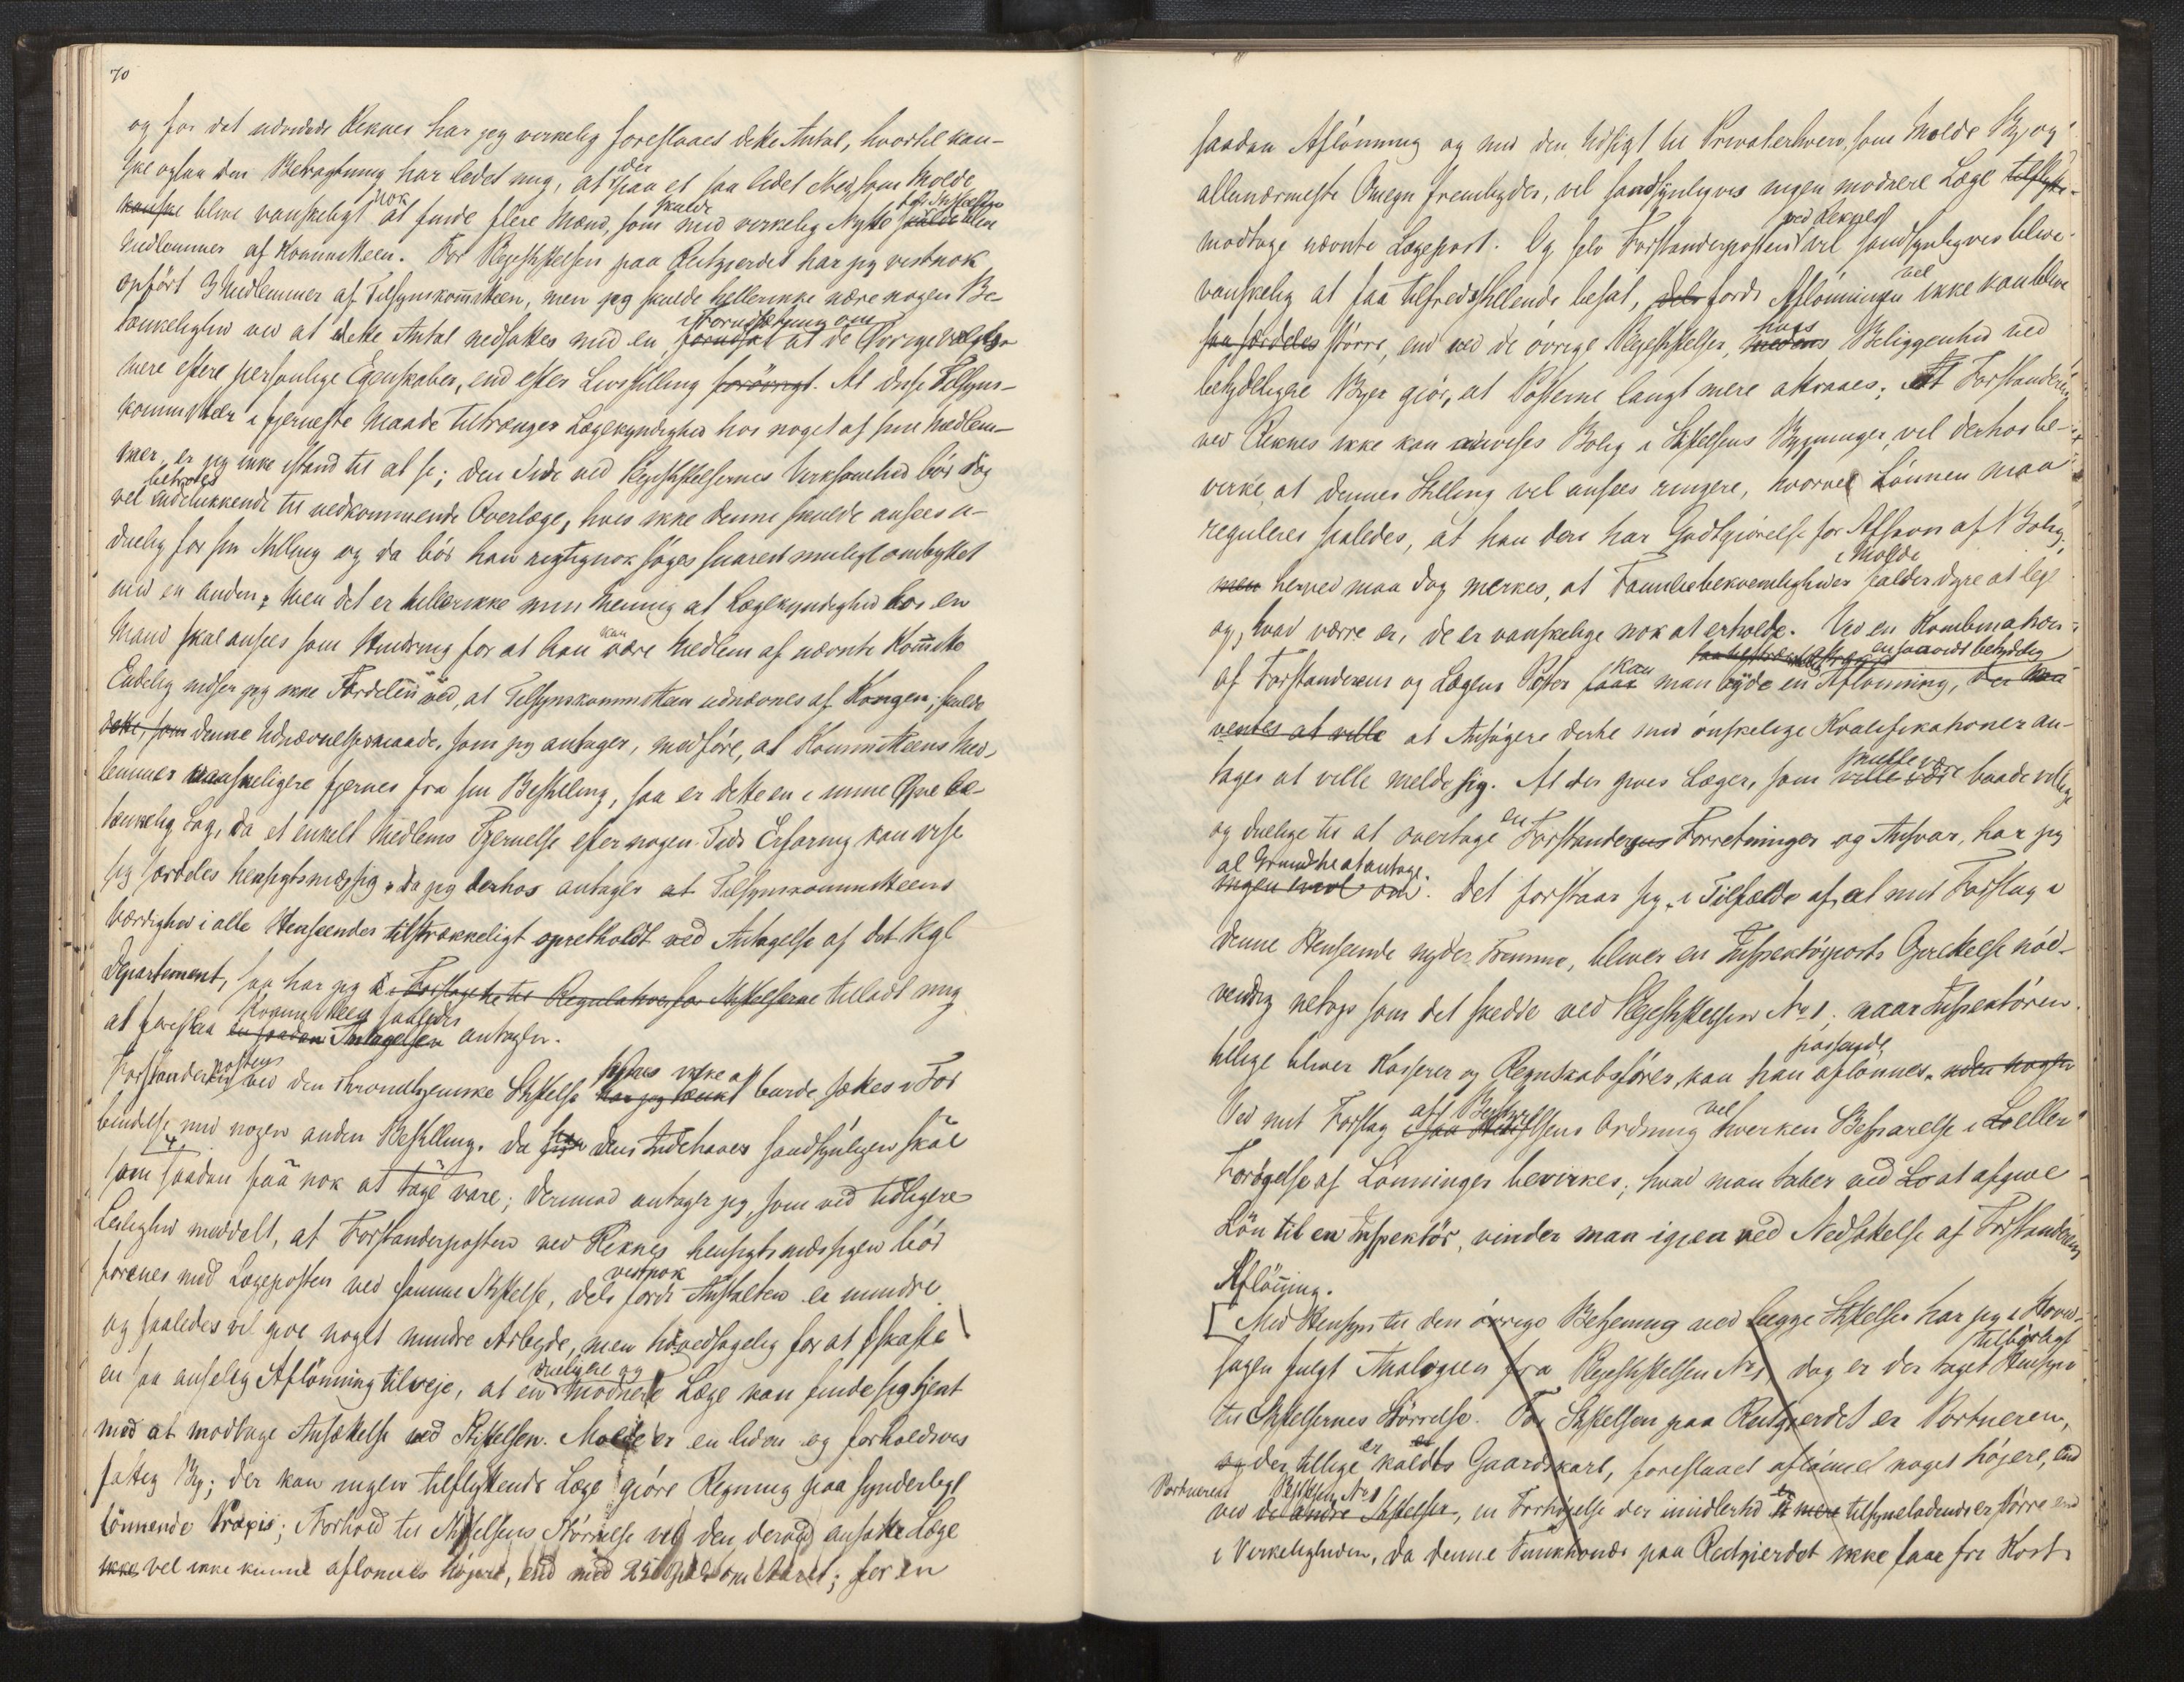 70
og for det udvidede Reknes har jeg virkelig foreslaaet dette Antal, hvortil kan-
ske ogsaa den Betragtning har ledet mig, at der paa et saa lidet Sted som Molde
kanske blive vanskeligt nok at finde flere Mænd, som skulde med virkelig Nytte for Stiftelsen skulde blive
Medlemmer af Kommitteen. For Plejestiftelsen paa Reitgjerdet har jeg vistnok
opført 3 Medlemmer af Tilsynskommitteen, men jeg skulde hellerikke nære nogen Be-
tænkelighed ved at dette Antal nedsattes med en, forudsat i Forudsætning om at de Øvrige vælges
mere efter personlige Egenskaber, end efter Livsstilling forøvrigt. At disse Tilsyns-
kommitteer i fjerneste Maade tiltrænger Lægekyndighed hos noget af sine Medlem-
mer, er jeg ikke istand til at se; den Side ved Plejestiftelsernes Virksomhed bør dog
vel betroes udelukkende til vedkommende Overlæge, hvis ikke denne skulde ansees u-
duelig for sin Stilling og da bør han rigtignok søges snarest muligt ombyttet
med en anden; Men det er hellerikke min Mening at Lægekyndighed hos en
Mand skal ansees som Hindring for at han kan være Medlem af nævnte Komitte
Endelig indser jeg ikke Fordelen ved, at Tilsynskommitteen udnævnes af Kongen; skulde
dette, som denne Udnævnelsesmaade, som jeg antager, medføre, at Kommitteens Med-
lemmer vanskeligere fjernes fra sin Bestilling, saa er dette en i mine Øjne be-
tænkelig Sag, da et enkelt Medlems Fjernelse efter nogen Tids Erfaring kan vise
sig særdeles hensigtsmæssig. Da jeg derhos antager at Tilsynskommitteens
Værdighed i alle Henseender tilstrækkeligt opretholdt ved Antagelse af det Kgl
Departement, saa har jeg i Forslagene til Regulativer for Stiftelserne tilladt mig
at foreslaa en saadan Antagelsen Kommitteen saaledes antagen.
Forstanderen postens ved den throndhjemske Stiftelse har jeg tænkt synes ikke at burde sættes i For
bindelse med nogen anden Bestilling. Da han den Indehaver sandsynligen skal
som saadan faa nok at tage vare; derimod antager jeg, som ved tidligere
Leilighed meddelt, at Forstanderposten ved Reknes hensigtsmæssigen bør
forenes med Lægeposten ved samme Stiftelse, dels fordi vistnok Anstalten er mindre
og saaledes vil give noget mindre Arbejde, men hovedsagelig for at skaffe
en saa anselig Aflønning tilveje, at en dueligere og modnere Læge kan finde sig tjent
med at modtage Ansættelse ved Stiftelsen. Molde er en liden og forholdsvis
fattig By; der kan ingen tilflyttende Læge gjøre Regning paa synderligt
lønnende Praxis; Forhold til Stiftelsens Størrelse vil den derved ansatte Læge
ikke vel ikke kunne aflønnes højere, end med 250 Spd om Aaret; for en
saadan Aflønning og med den Udsigt til Privaterhverv, som Molde By og
allernærmeste Omegn frembyder, vil sandsynligvis ingen modnere Læge tilflytte
modtage nævnte Lægepost. Og selv Forstanderposten ved Reknes vil sandsynligvis blive
vanskelig at faa tilfredsstillende besat, dels fordi Aflønningen vel ikke kan blive
saa særdeles større, end ved de øvrige Plejestiftelser, medens hvis Beliggenhed ved
betydeligere Byer gjør, at Posterne langt mere attraaes; At Forstanderen
ved Reknes ikke kan anvises Bolig i Stiftelsens Bygninger, vil derhos be-
virke, at dennes Stilling vil ansees ringere, hvorvel Lønnen maa
reguleres saaledes, at han deri har Godtgjørelse for Afsavn af Bolig;
men herved maa dog merkes, at Familiebekvemligheder i Molde falder dyre at leje
og, hvad værre er, de er vanskelige nok at erholde. Ved en Kombination
af Forstanderens og Lægens Poster kan man byde en en saavidt betydelig Aflønning, der kan
ventes at ville at Ansøgere dertil med ønskelige Kvalifikationer an-
tages at ville melde sig. At der gives Læger, som ville være skulle være baade villige
og duelige til at overtage en Forstanderens Forretninger og Ansvar, har jeg
ingen tvivl om. al Grund til at antage. Det forstaar sig, i Tilfælde af, at mit Forslag i
denne Henseende nyder Fremme, bliver en Inspektørposts Oprettelse nød-
vendig netop som det skedde ved Plejestiftelsen No 1; naar Inspektøren
tillige bliver Kasserer og Regnskabsfører, kan han passende aflønnes.
Ved mit Forslag af Bestyrelsens Ordning vil hverken Besparelse i Lø eller
Forøgelse af Lønninger bevirkes; hvad man taber ved Lø at afgive
Løn til en Inspektør, vinder man igjen ved Nedsættelse af Forstanderens
Aflønning.
Med Hensyn til den øvrige Betjening ved begge Stiftelser har jeg i Hoved-
sagen fulgt Analogien fra Plejestiftelsen No 1, dog er der taget tilbørligt Hensyn
til Stiftelsernes Størrelse. For Stiftelsen paa Reitgjerdet er Portneren,
og der tillige er kaldt Gaardskarl, foreslaaet aflønnet noget højere, end
Portneren ved de andre Stiftelser Stiftelsen No 1, en Forhøjelse der imidlertid er mere tilsyneladende større end
i Virkeligheden, da denne Funktionær paa Reitgjerdet ikke faar fri Kost